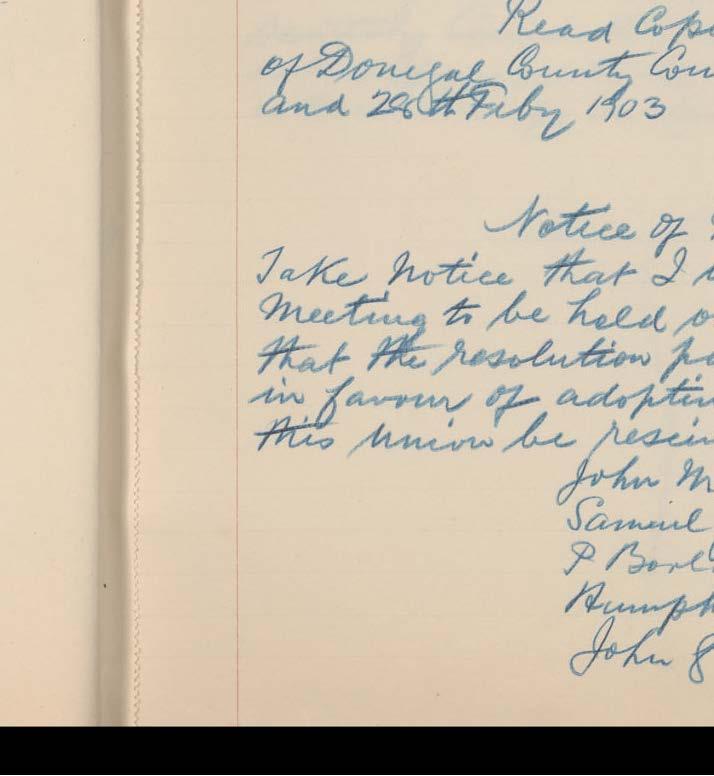 Read Cop
of Donegal County Cou
and 28th Feby 1903
Notice of
Take Notice that I
Meeting to be held o
that the resolution pa
in favour of adoptin
this Union be rescin
John M
Samuel
P Boyl
Humph
John